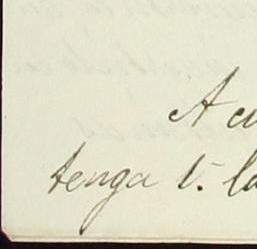 A cu
tenga V. la